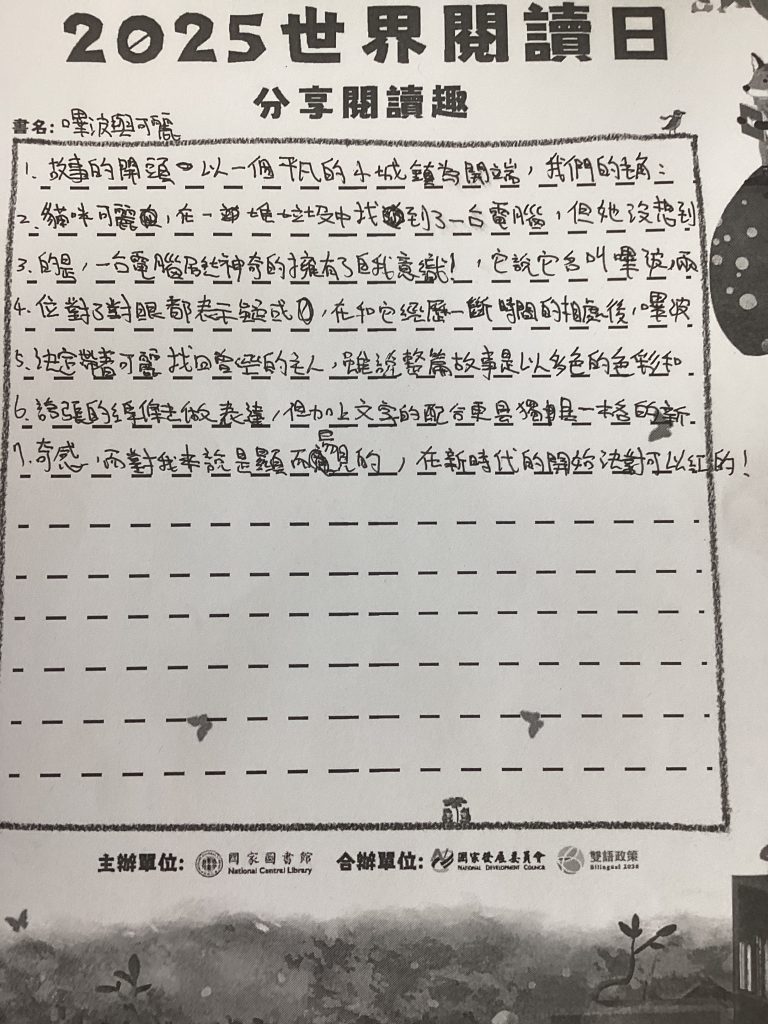 2025世界閱讀日
分享閱讀趣
書名:嗶波與可麗
1. 故事的開頭以一個平凡的小城鎮為開端,我們的主角:
2. 貓咪可麗,在一堆垃圾中找到了一台電腦,但她沒想到
3. 的是,一台電腦居然神奇的擁有了自我意識!,它說它名叫嗶波,兩
4. 位對了對眼都表示疑惑,在和它經歷一斷時間的相處後,嗶波
5. 決定帶著可麗找回曾經的主人,雖說整篇故事是以多色的色彩和
6. 誇張的線條去做表達,但加上文字的配合更是獨具一格的新
7. 奇感,而對我來說是顯而易見的,在新時代的開始決對可以紅的!
主辦單位: 國家圖書館 National Central Library 合辦單位: 國家發展委員會 NATIONAL DEVELOPMENT COUNCIL 雙語政策 Bilingual 2030